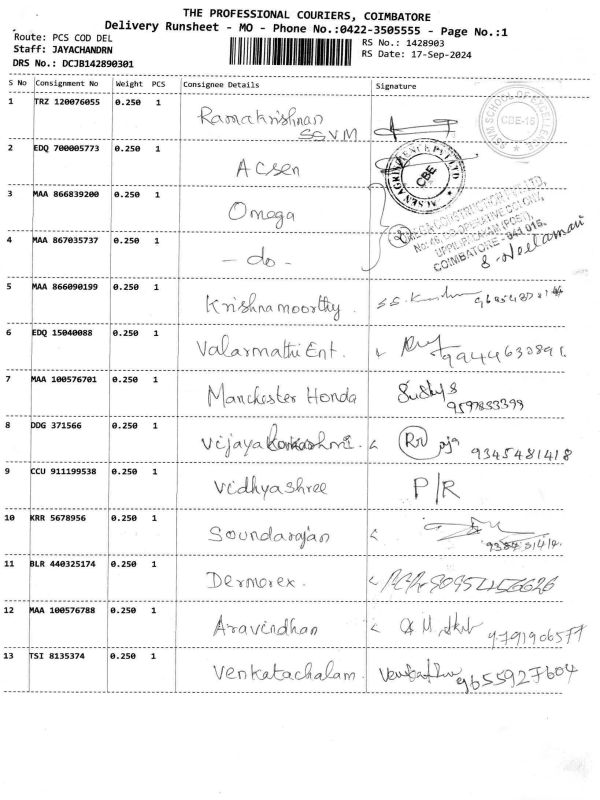 THE PROFESSIONAL COURIERS, COIMBATORE
Delivery Runsheet - MO - Phone No.:0422-3505555 - Page No.:1
Route: PCS COD DEL
RS No.: 1428903
Staff: JAYACHANDRN
RS Date: 17-Sep-2024
DRS No.: DCJB142890301
S No Consignment No Weight PCS Consignee Details Signature
1 TRZ 120076055 0.250 1 Ramakrishnan
SSVM
SSVM SCHOOL OF EXCELLENCE
CBE-15
2 EDQ 700005773 0.250 1 Acsen
CBE
3 MAA 866839200 0.250 1 Omega
OMEGA CONSTRUCTION PVT LTD,
4 MAA 867035737 0.250 1 - do -
UPPILIPALAYAM (POST),
COIMBATORE - 641 015.
S. Neelamani
5 MAA 866090199 0.250 1 Krishnamoorthy.
6 EDQ 15040088 0.250 1 Valarmathi Ent. 9944630891
7 MAA 100576701 0.250 1 Manchester Honda
9597833399
8 DDG 371566 0.250 1 Vijaya RR 9345481418
9 CCU 911199538 0.250 1 Vidhyashree P/R
10 KRR 5678956 0.250 1 Soundarajan
11 BLR 440325174 0.250 1 Dermorex.
12 MAA 100576788 0.250 1 Aravindhan 9791906577
13 TSI 8135374 0.250 1 Venkatachalam. 9655927604